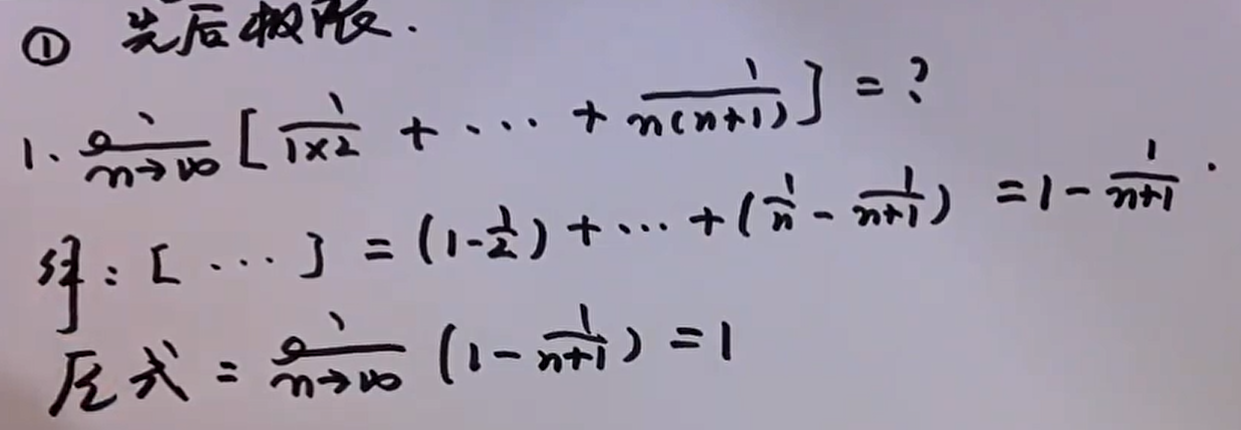 ① 先后极限.
1. lim n→∞ [ 1/(1×2) + ... + 1/(n(n+1)) ] = ?
解: [ ... ] = (1-1/2) + ... + (1/n - 1/(n+1)) = 1 - 1/(n+1).
原式 = lim n→∞ (1 - 1/(n+1)) = 1